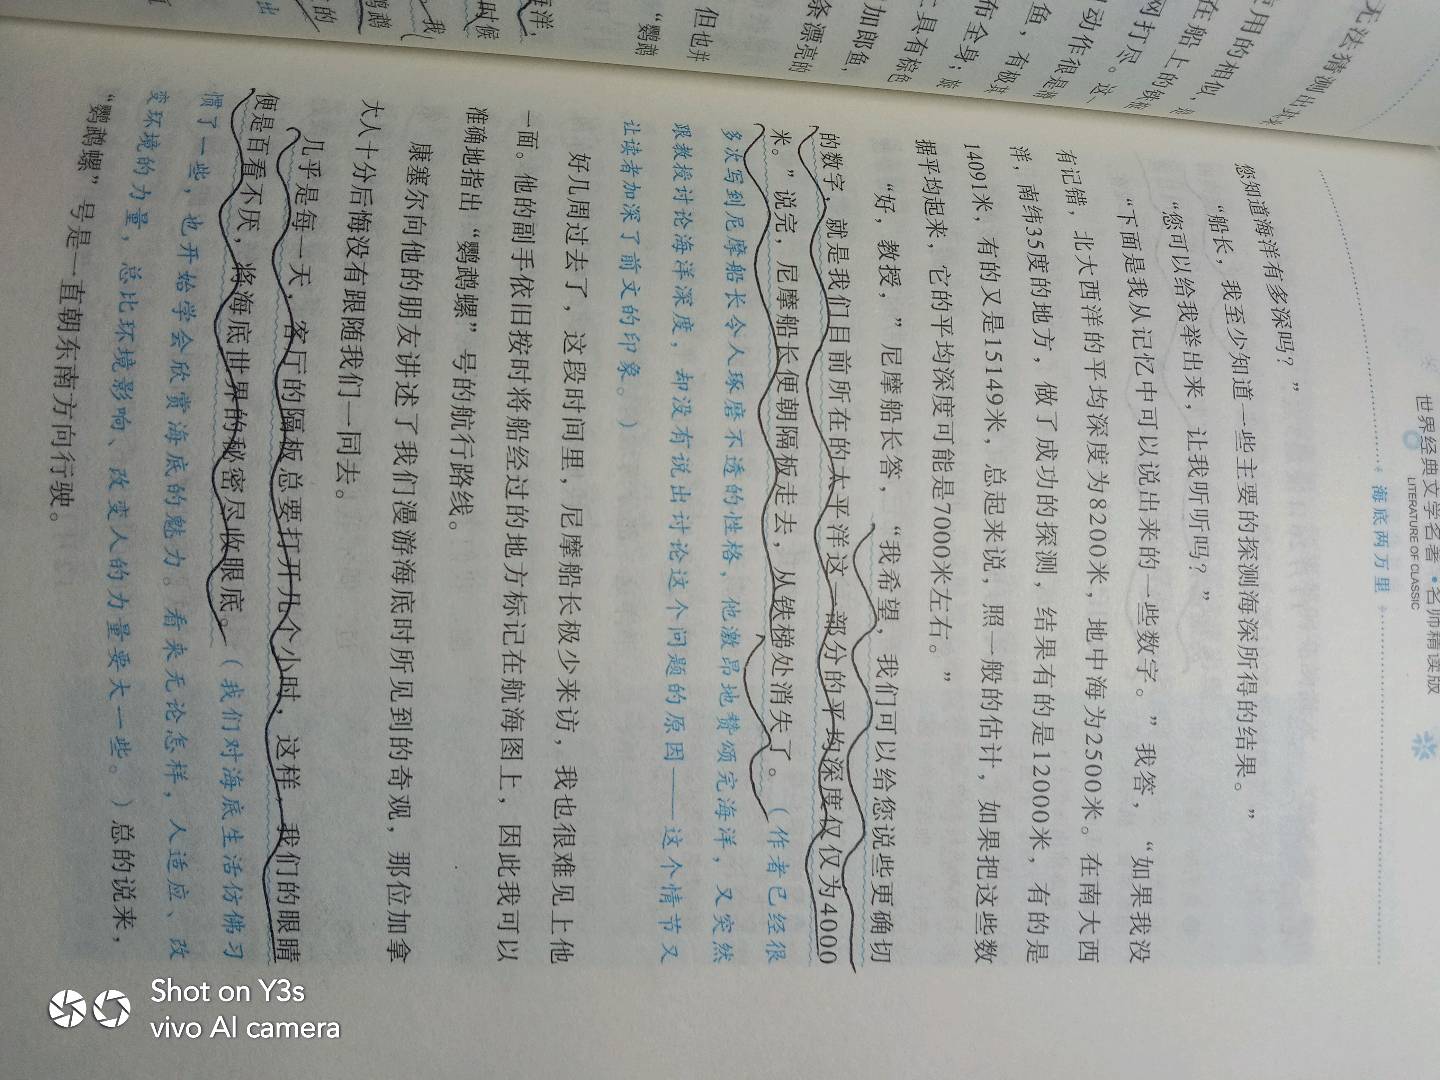 世界经典文学名著•名师精读版
LITERATURE OF CLASSIC
海底两万里
您知道海洋有多深吗？”
“船长，我至少知道一些主要的探测海深所得的结果。”
“您可以给我举出来，让我听听吗？”
“下面是我从记忆中可以说出来的一些数字。”我答，“如果我没
有记错，北大西洋的平均深度为8200米，地中海为2500米。在南大西
洋，南纬35度的地方，做了成功的探测，结果有的是12000米，有的是
14091米，有的又是15149米，总起来说，照一般的估计，如果把这些数
据平均起来，它的平均深度可能是7000米左右。”
“好，教授，”尼摩船长答，“我希望，我们可以给您说些更确切
的数字，就是我们目前所在的太平洋这一部分的平均深度仅仅为4000
米。”说完，尼摩船长便朝隔板走去，从铁梯处消失了。（作者已经很
多次写到尼摩船长令人琢磨不透的性格，他激昂地赞颂完海洋，又突然
跟教授讨论海洋深度，却没有说出讨论这个问题的原因——这个情节又
让读者加深了前文的印象。）
好几周过去了，这段时间里，尼摩船长极少来访，我也很难见上他
一面。他的副手依旧按时将船经过的地方标记在航海图上，因此我可以
准确地指出“鹦鹉螺”号的航行路线。
康塞尔向他的朋友讲述了我们漫游海底时所见到的奇观，那位加拿
大人十分后悔没有跟随我们一同去。
几乎是每一天，客厅的隔板总要打开几个小时，这样，我们的眼睛
便是百看不厌，将海底世界的秘密尽收眼底。（我们对海底生活仿佛习
惯了一些，也开始学会欣赏海底的魅力。看来无论怎样，人适应、改
变环境的力量，总比环境影响、改变人的力量要大一些。）总的说来，
“鹦鹉螺”号是一直朝东南方向行驶。
无法猜测出其
用的相似，
在船上的
网打尽。这
动作很是
鱼，有极
布全身；
具有棕色
加郎鱼，
条漂亮的
但也并
“鹦鹉
海洋，
时候
我
鹦鹉
的
出
Shot on Y3s
vivo AI camera